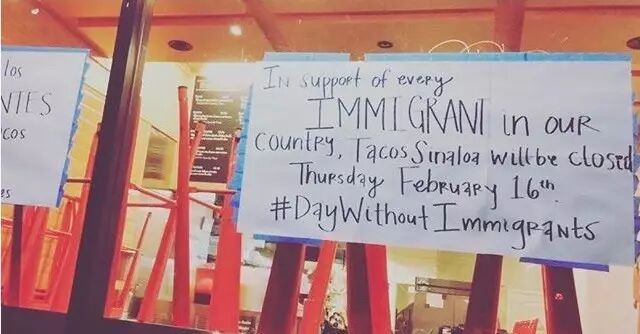 los
NTES
cos
es
In support of every
IMMIGRANT in our
country, Tacos Sinaloa will be closed
Thursday February 16th.
#DayWithout Immigrants